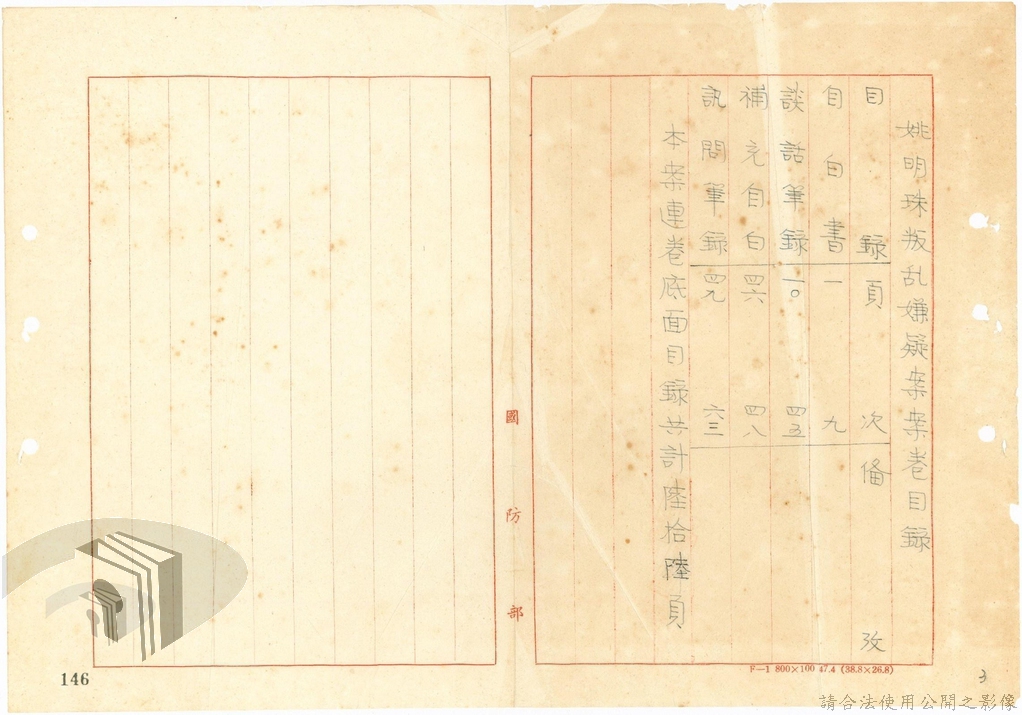 姚明珠叛乱嫌疑案案卷目錄
目錄頁次備攷
自白書一 九
談話筆錄一〇 四五
補充自白四六 四八
訊問筆錄四九 六三
本案連卷底面目錄共計陸拾陸頁
國防部
F—1 800×100 47.4 (38.8×26.8)
146
3
請合法使用公開之影像